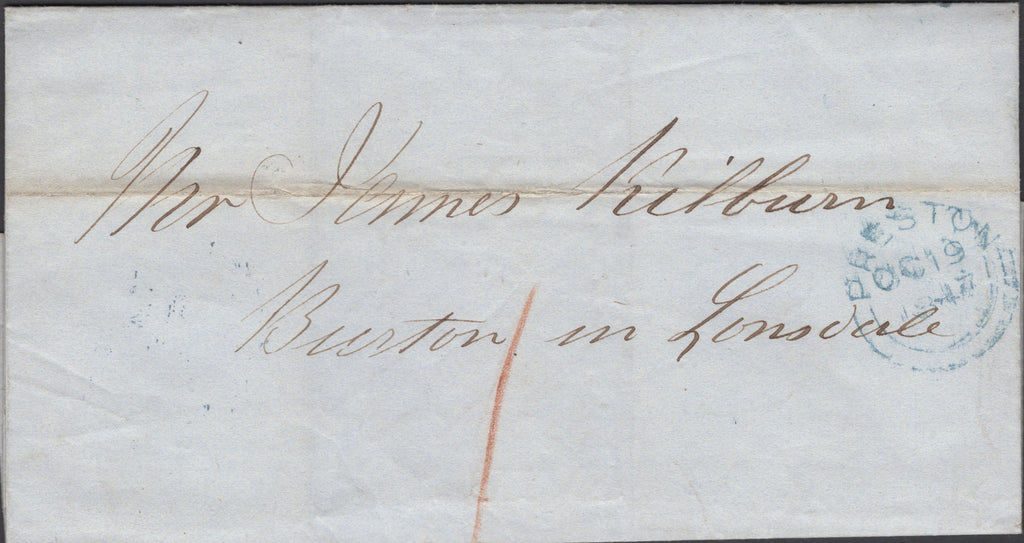 Mr James Kilburn
PRESTON
OC 19
1847
Burton in Lonsdale
1